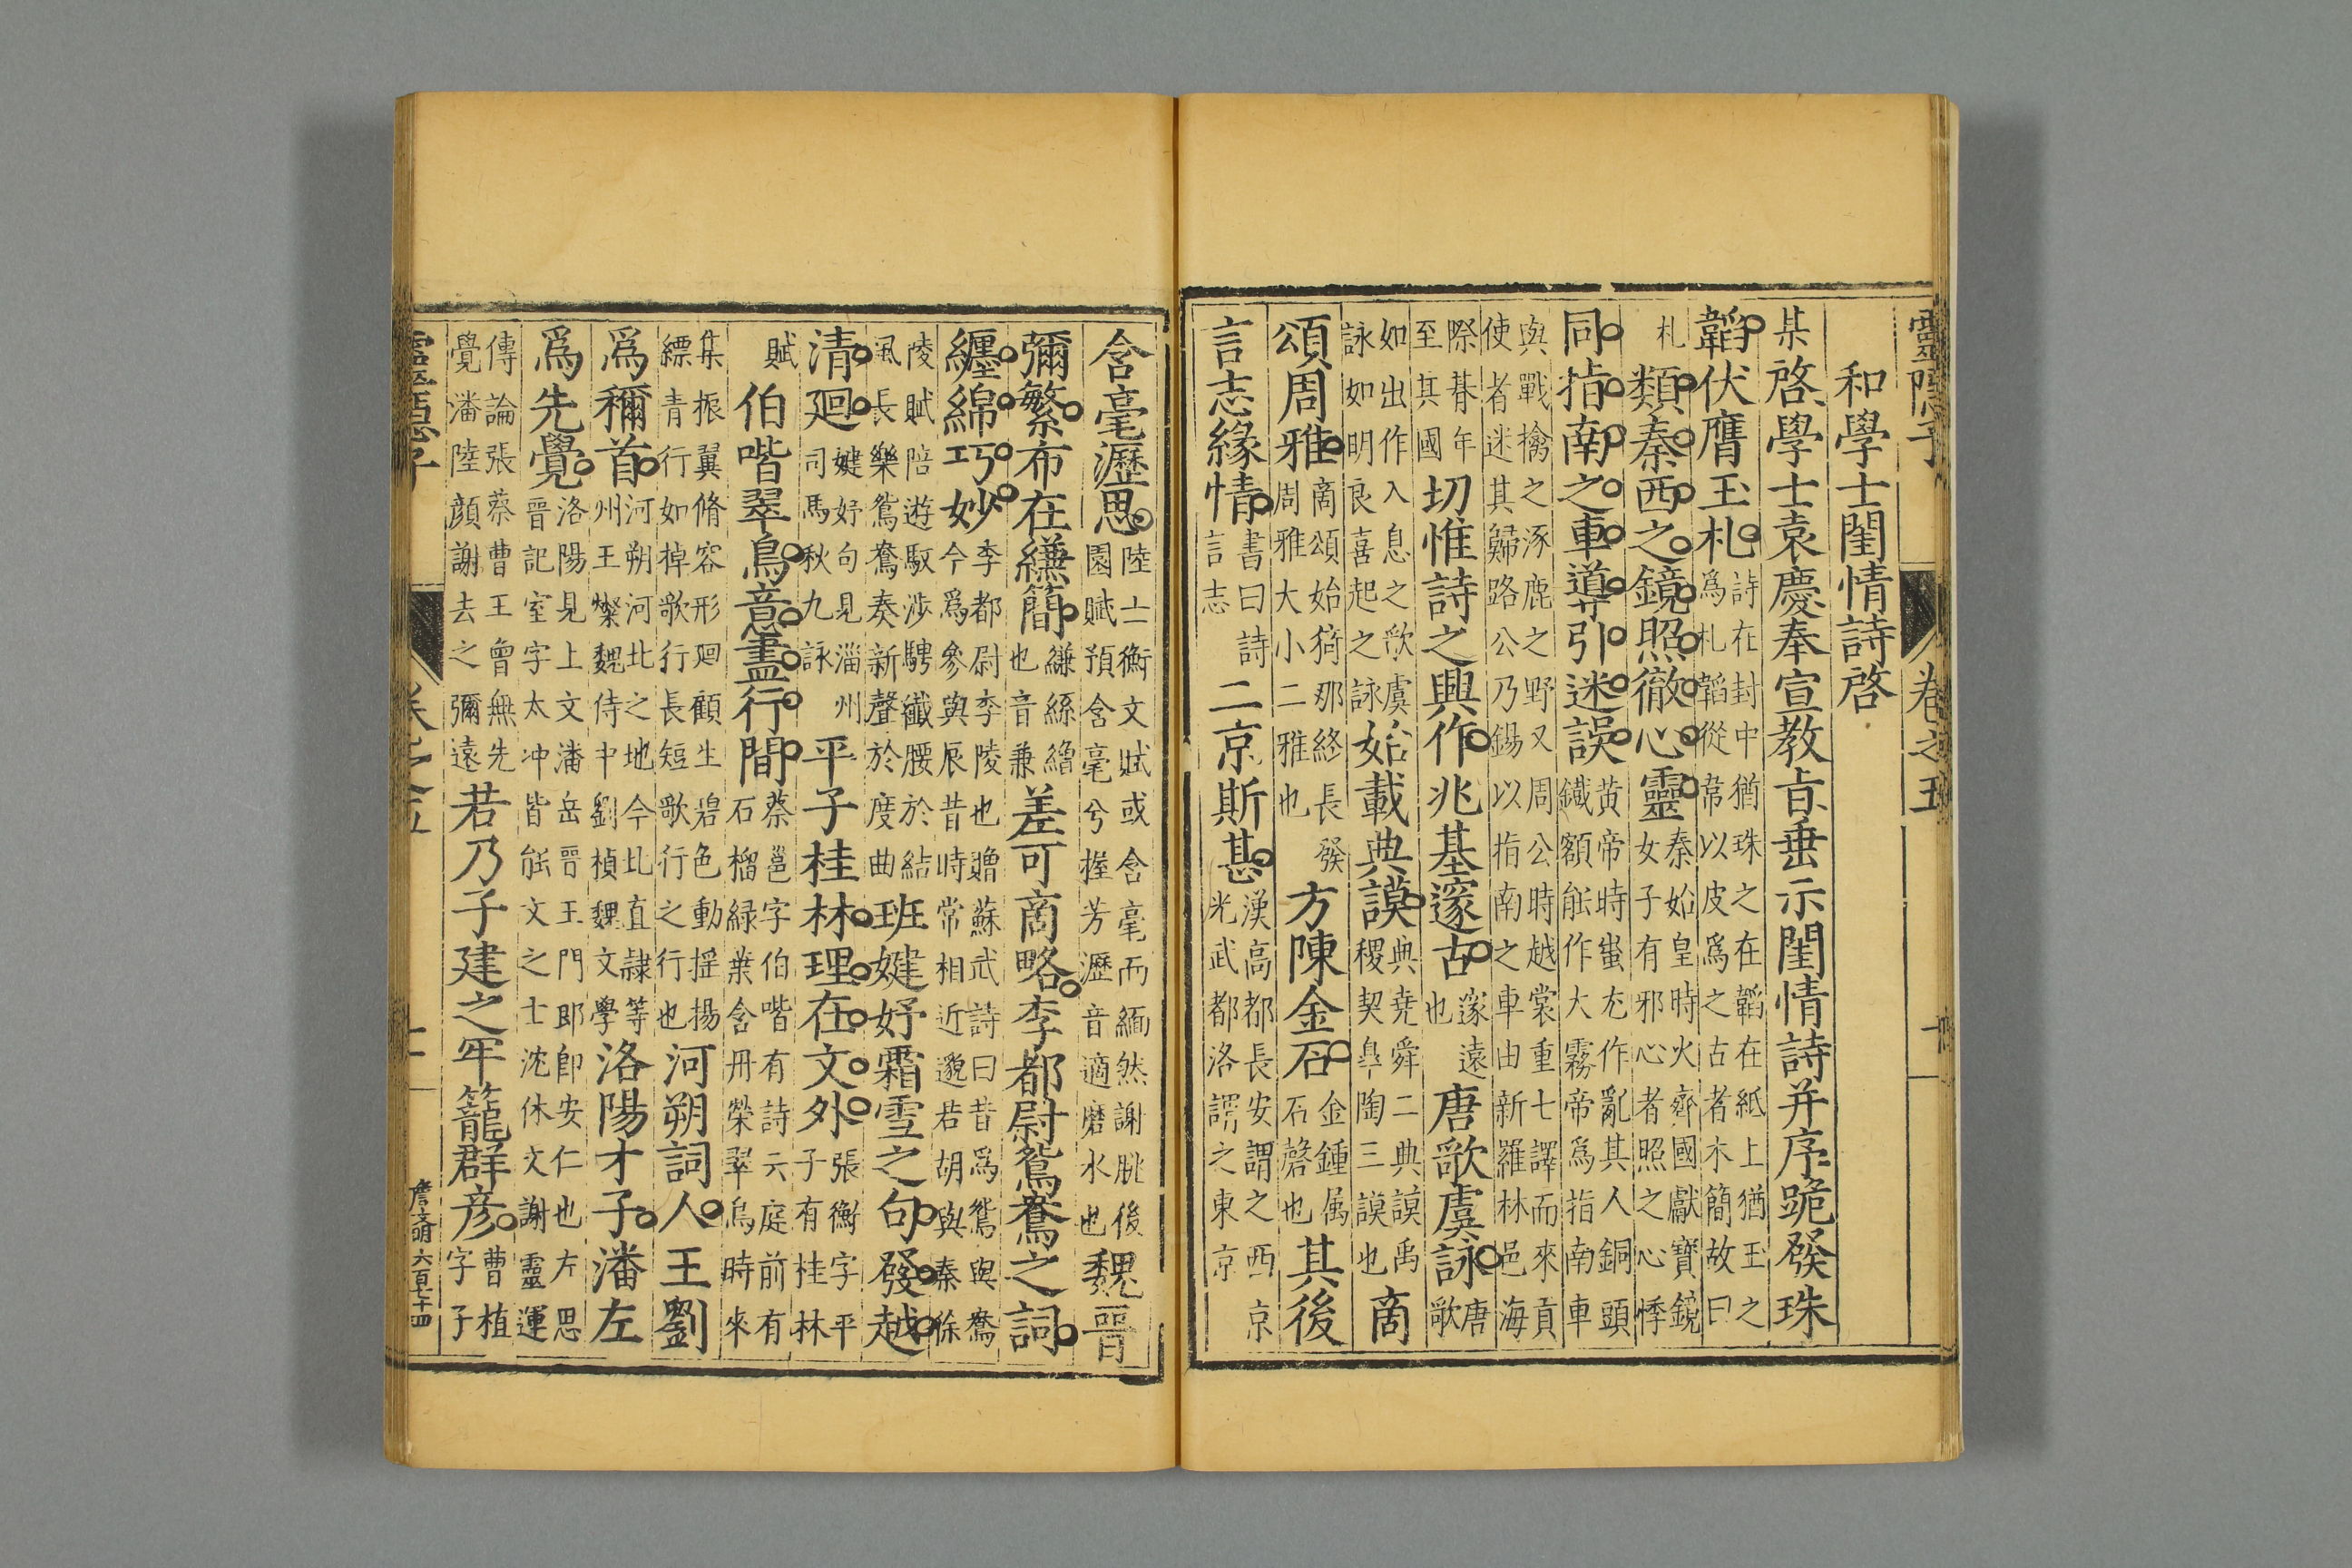 靈隱子
卷之五
和學士閨情詩啓
某啓學士袁慶奉宣教㫖垂示閨情詩并序跪發珠
韜伏膺玉札詩在封中猶珠之在韜在紙上猶玉之
爲札韜從韋以皮爲之古者木簡故曰
札類秦西之鏡照徹心靈秦始皇時火齊國獻寶鏡
女子有邪心者照之心悸
同指南之車導引迷誤黄帝時蚩尤作亂其人銅頭
鐵額能作大霧帝爲指南車
與戰擒之涿鹿之野又周公時越裳重七譯而來貢
使者迷其歸路公乃錫以指南之車由新羅林邑海
際朞年
至其國切惟詩之興作兆基邃古邃遠
也唐歌虞詠唐
歌
如出作入息之歌虞
詠如明良喜起之詠始載典謨典堯舜二典謨禹
稷契臯陶三謨也商
頌周雅商頌始猗那終長發
周雅大小二雅也方陳金石金鍾属
石磬也其後
言志緣情書曰詩
言志二京斯甚漢高都長安謂之西京
光武都洛謂之東京
含毫瀝思陸士衡文賦或含毫而緬然謝朓後
園賦預含毫兮握芳瀝音適磨水也魏晉
彌繁布在縑簡縑絲繒
也音兼差可商略李都尉鴛鴦之詞
纏綿巧妙李都尉李陵也贈蘇武詩曰昔爲鴛與鴦
今爲參與辰昔時常相近邈若胡與秦徐
陵賦陪遊馭渉騁纖腰於結
風長樂鴛鴦奏新聲於度曲班婕妤霜雪之句發越
清廻婕妤句見淄州
司馬秋九詠平子桂林理在文外張衡字平
子有桂林
賦伯喈翠鳥意盡行間蔡邕字伯喈有詩云庭前有
石榴緑葉含丹榮翠鳥時來
集振翼脩容形廻顧生碧色動揺揚
縹青行如棹歌行長短歌行之行也河朔詞人王劉
爲稱首河朔河北之地今北直隷等
州王燦魏侍中劉楨魏文學洛陽才子潘左
爲先覺洛陽見上文潘岳晋王門郎即安仁也左思
晋記室字太冲皆能文之士沈休文謝靈運
傳論張蔡曹王曾無先
覺潘陸顔謝去之彌遠若乃子建之牢籠群彦曹植
字子
詹文明六百七十四